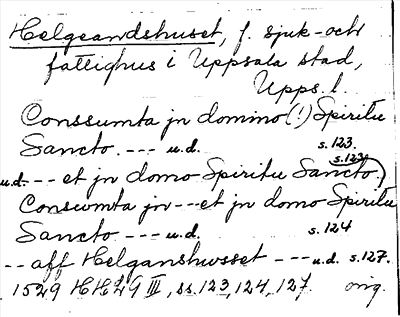 Helgeandshuset, f. sjuk- och
fattighus i Uppsala stad,
Upps. l.
Conssumta jn domino (!) Spiritu
Sancto. --- u.d. s. 123.
u.d. --- et jn domo Spiritu Sancto.) s. 123
Conswmta jn --- et jn domo Spiritu
Sancto --- u.d. s. 124
-- aff Helganshwsset --- u.d. s. 127.
1529 HH 29 III, ss. 123, 124, 127. orig.